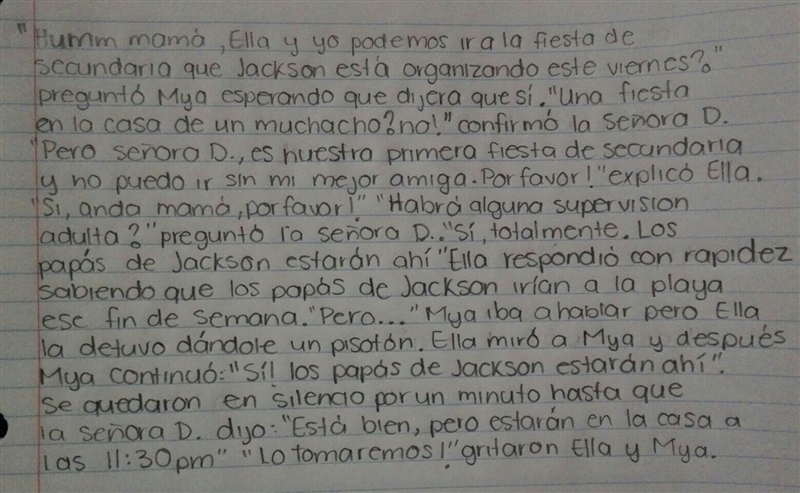 "Humm mamá, Ella y yo podemos ir a la fiesta de
secundaria que Jackson está organizando este viernes?"
preguntó Mya esperando que dijera que sí. "Una fiesta
en la casa de un muchacho? no!" confirmó la Señora D.
"Pero señora D., es nuestra primera fiesta de secundaria
y no puedo ir sin mi mejor amiga. Por favor!" explicó Ella.
"Si, anda mamá, por favor!" "Habrá alguna supervision
adulta?" preguntó la señora D.. "Sí, totalmente. Los
papás de Jackson estarán ahí" Ella respondió con rapidez
sabiendo que los papás de Jackson irían a la playa
ese fin de semana. "Pero..." Mya iba a hablar pero Ella
la detuvo dándole un pisotón. Ella miró a Mya y después
Mya continuó: "Sí! los papás de Jackson estarán ahí".
Se quedaron en silencio por un minuto hasta que
la señora D. dijo: "Está bien, pero estarán en la casa a
las 11:30pm" "Lo tomaremos!" gritaron Ella y Mya.